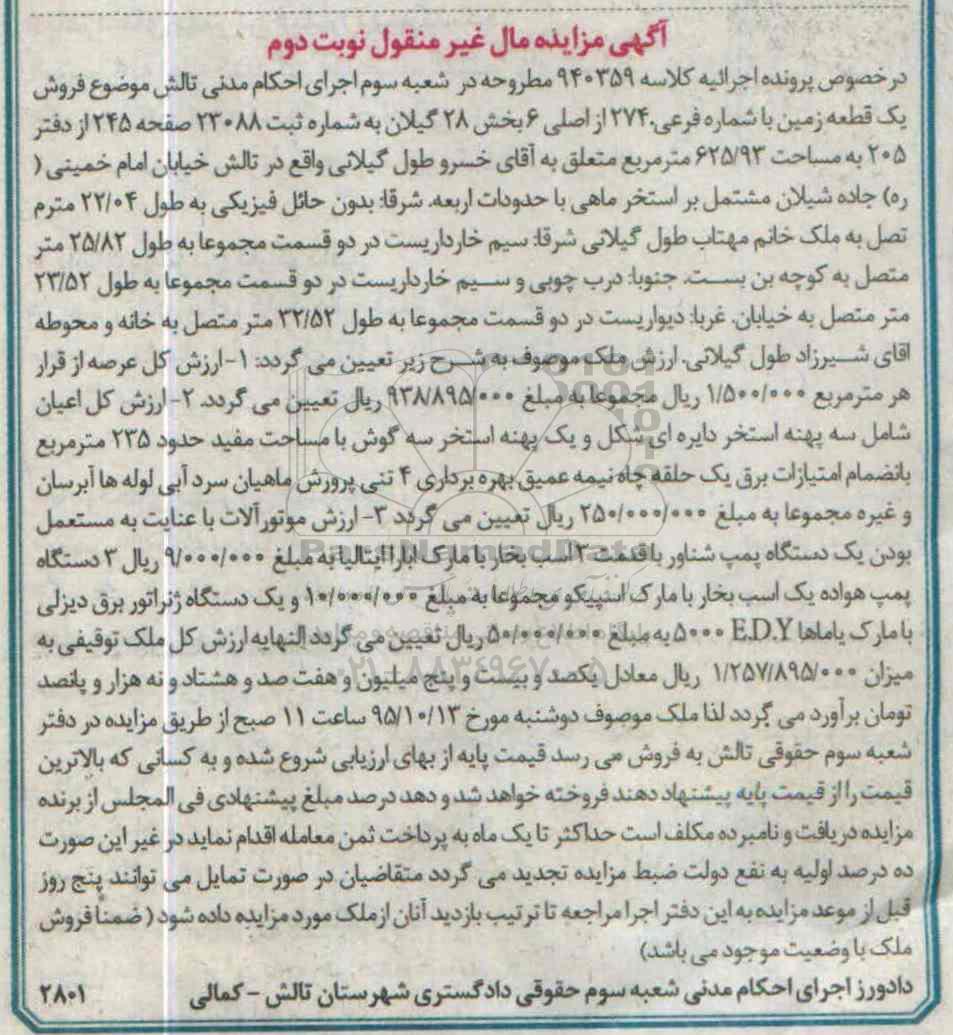 آگهی مزایده مال غیر منقول نوبت دوم
درخصوص پرونده اجرائیه کلاسه ۹۴۰۳۵۹ مطروحه در شعبه سوم اجرای احکام مدنی تالش موضوع فروش
یک قطعه زمین با شماره فرعی.۲۷۴ از اصلی ۶ بخش ۲۸ گیلان به شماره ثبت ۲۳۰۸۸ صفحه ۲۴۵ از دفتر
۲۰۵ به مساحت ۶۲۵/۹۳ مترمربع متعلق به آقای خسرو طول گیلانی واقع در تالش خیابان امام خمینی (
ره) جاده شیلان مشتمل بر استخر ماهی با حدودات اربعه. شرقا: بدون حائل فیزیکی به طول ۲۲/۰۴ مترم
تصل به ملک خانم مهتاب طول گیلانی شرقا: سیم خارداریست در دو قسمت مجموعا به طول ۲۵/۸۲ متر
متصل به کوچه بن بست. جنوبا: درب چوبی و سیم خارداریست در دو قسمت مجموعا به طول ۲۳/۵۲
متر متصل به خیابان. غربا: دیواریست در دو قسمت مجموعا به طول ۳۲/۵۲ متر متصل به خانه و محوطه
اقای شیرزاد طول گیلانی. ارزش ملک موصوف به شرح زیر تعیین می گردد: ۱-ارزش کل عرصه از قرار
هر مترمربع ۱/۵۰۰/۰۰۰ ریال مجموعا به مبلغ ۹۳۸/۸۹۵/۰۰۰ ریال تعیین می گردد. ۲-ارزش کل اعیان
شامل سه پهنه استخر دایره ای شکل و یک پهنه استخر سه گوش با مساحت مفید حدود ۲۳۵ مترمربع
بانضمام امتیازات برق یک حلقه چاه نیمه عمیق بهره برداری ۴ تنی پرورش ماهیان سرد آبی لوله ها آبرسان
و غیره مجموعا به مبلغ ۲۵۰/۰۰۰/۰۰۰ ریال تعیین می گردد ۳-ارزش موتورآلات با عنایت به مستعمل
بودن یک دستگاه پمپ شناور با قدمت ۳ اسب بخار با مارک ابارا ایتالیا به مبلغ ۹/۰۰۰/۰۰۰ ریال ۳ دستگاه
پمپ هواده یک اسب بخار با مارک اسپیکو مجموعا به مبلغ ۱۰/۰۰۰/۰۰۰ و یک دستگاه ژنراتور برق دیزلی
با مارک یاماها E.D.Y ۵۰۰۰ به مبلغ ۵۰/۰۰۰/۰۰۰ ریال تعیین می گردد النهایه ارزش کل ملک توقیفی به
میزان ۱/۲۵۷/۸۹۵/۰۰۰ ریال معادل یکصد و بیست و پنج میلیون و هفت صد و هشتاد و نه هزار و پانصد
تومان برآورد می گردد لذا ملک موصوف دوشنبه مورخ ۹۵/۱۰/۱۳ ساعت ۱۱ صبح از طریق مزایده در دفتر
شعبه سوم حقوقی تالش به فروش می رسد قیمت پایه از بهای ارزیابی شروع شده و به کسانی که بالاترین
قیمت را از قیمت پایه پیشنهاد دهند فروخته خواهد شد و دهد درصد مبلغ پیشنهادی فی المجلس از برنده
مزایده دریافت و نامبرده مکلف است حداکثر تا یک ماه به پرداخت ثمن معامله اقدام نماید در غیر این صورت
ده درصد اولیه به نفع دولت ضبط مزایده تجدید می گردد متقاضیان در صورت تمایل می توانند پنج روز
قبل از موعد مزایده به این دفتر اجرا مراجعه تا ترتیب بازدید آنان از ملک مورد مزایده داده شود ( ضمنا فروش
ملک با وضعیت موجود می باشد)
دادورز اجرای احکام مدنی شعبه سوم حقوقی دادگستری شهرستان تالش - کمالی ۲۸۰۱
ParsNamadData
۰۲۱-۸۸۳۴۹۶۷۰-۵